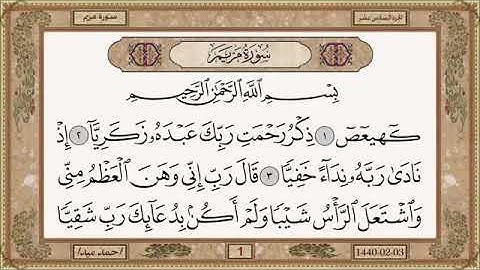 سورة مريم
الجزء السادس عشر
سُورَةُ مَرْيَم
بِسْمِ اللَّهِ الرَّحْمَٰنِ الرَّحِيمِ
كٓهيعٓصٓ ١ ذِكْرُ رَحْمَتِ رَبِّكَ عَبْدَهُۥ زَكَرِيَّآ ٢ إِذْ
نَادَىٰ رَبَّهُۥ نِدَآءً خَفِيًّا ٣ قَالَ رَبِّ إِنِّى وَهَنَ الْعَظْمُ مِنِّى
وَاشْتَعَلَ الرَّأْسُ شَيْبًا وَلَمْ أَكُنۢ بِدُعَآئِكَ رَبِّ شَقِيًّا
1
1440-02-03